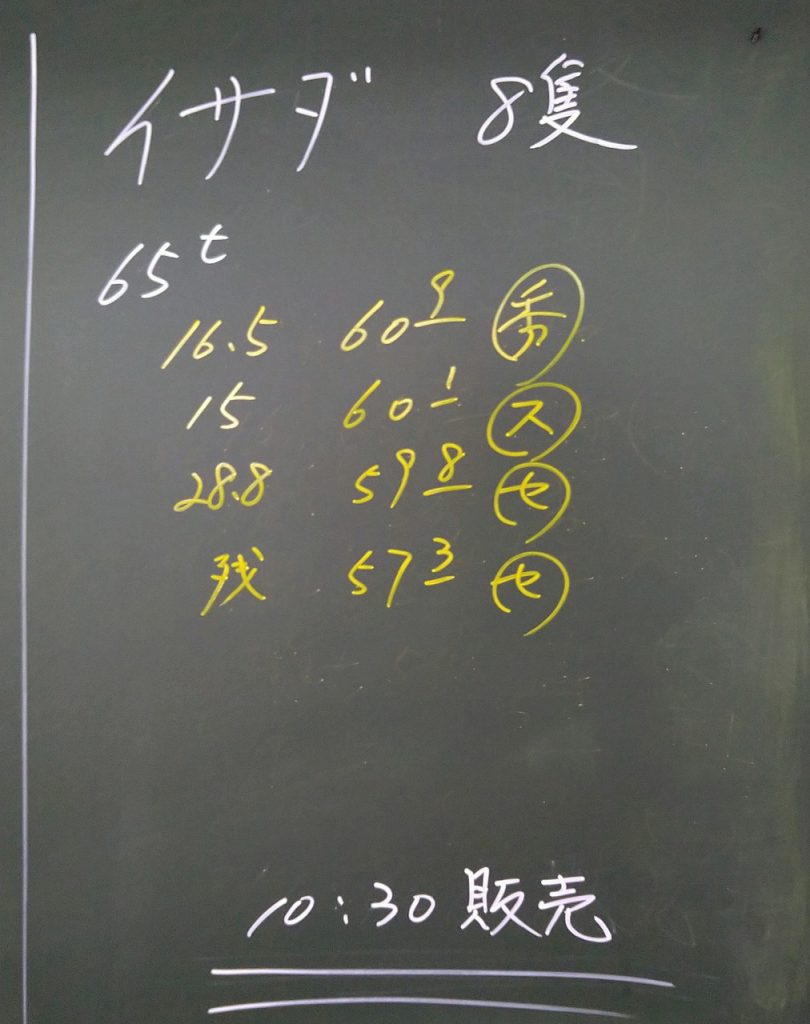 イサダ 8隻
65t
16.5 60 9 秀
15 60 1 ス
28.8 59 8 セ
残 57 3 セ
10:30 販売